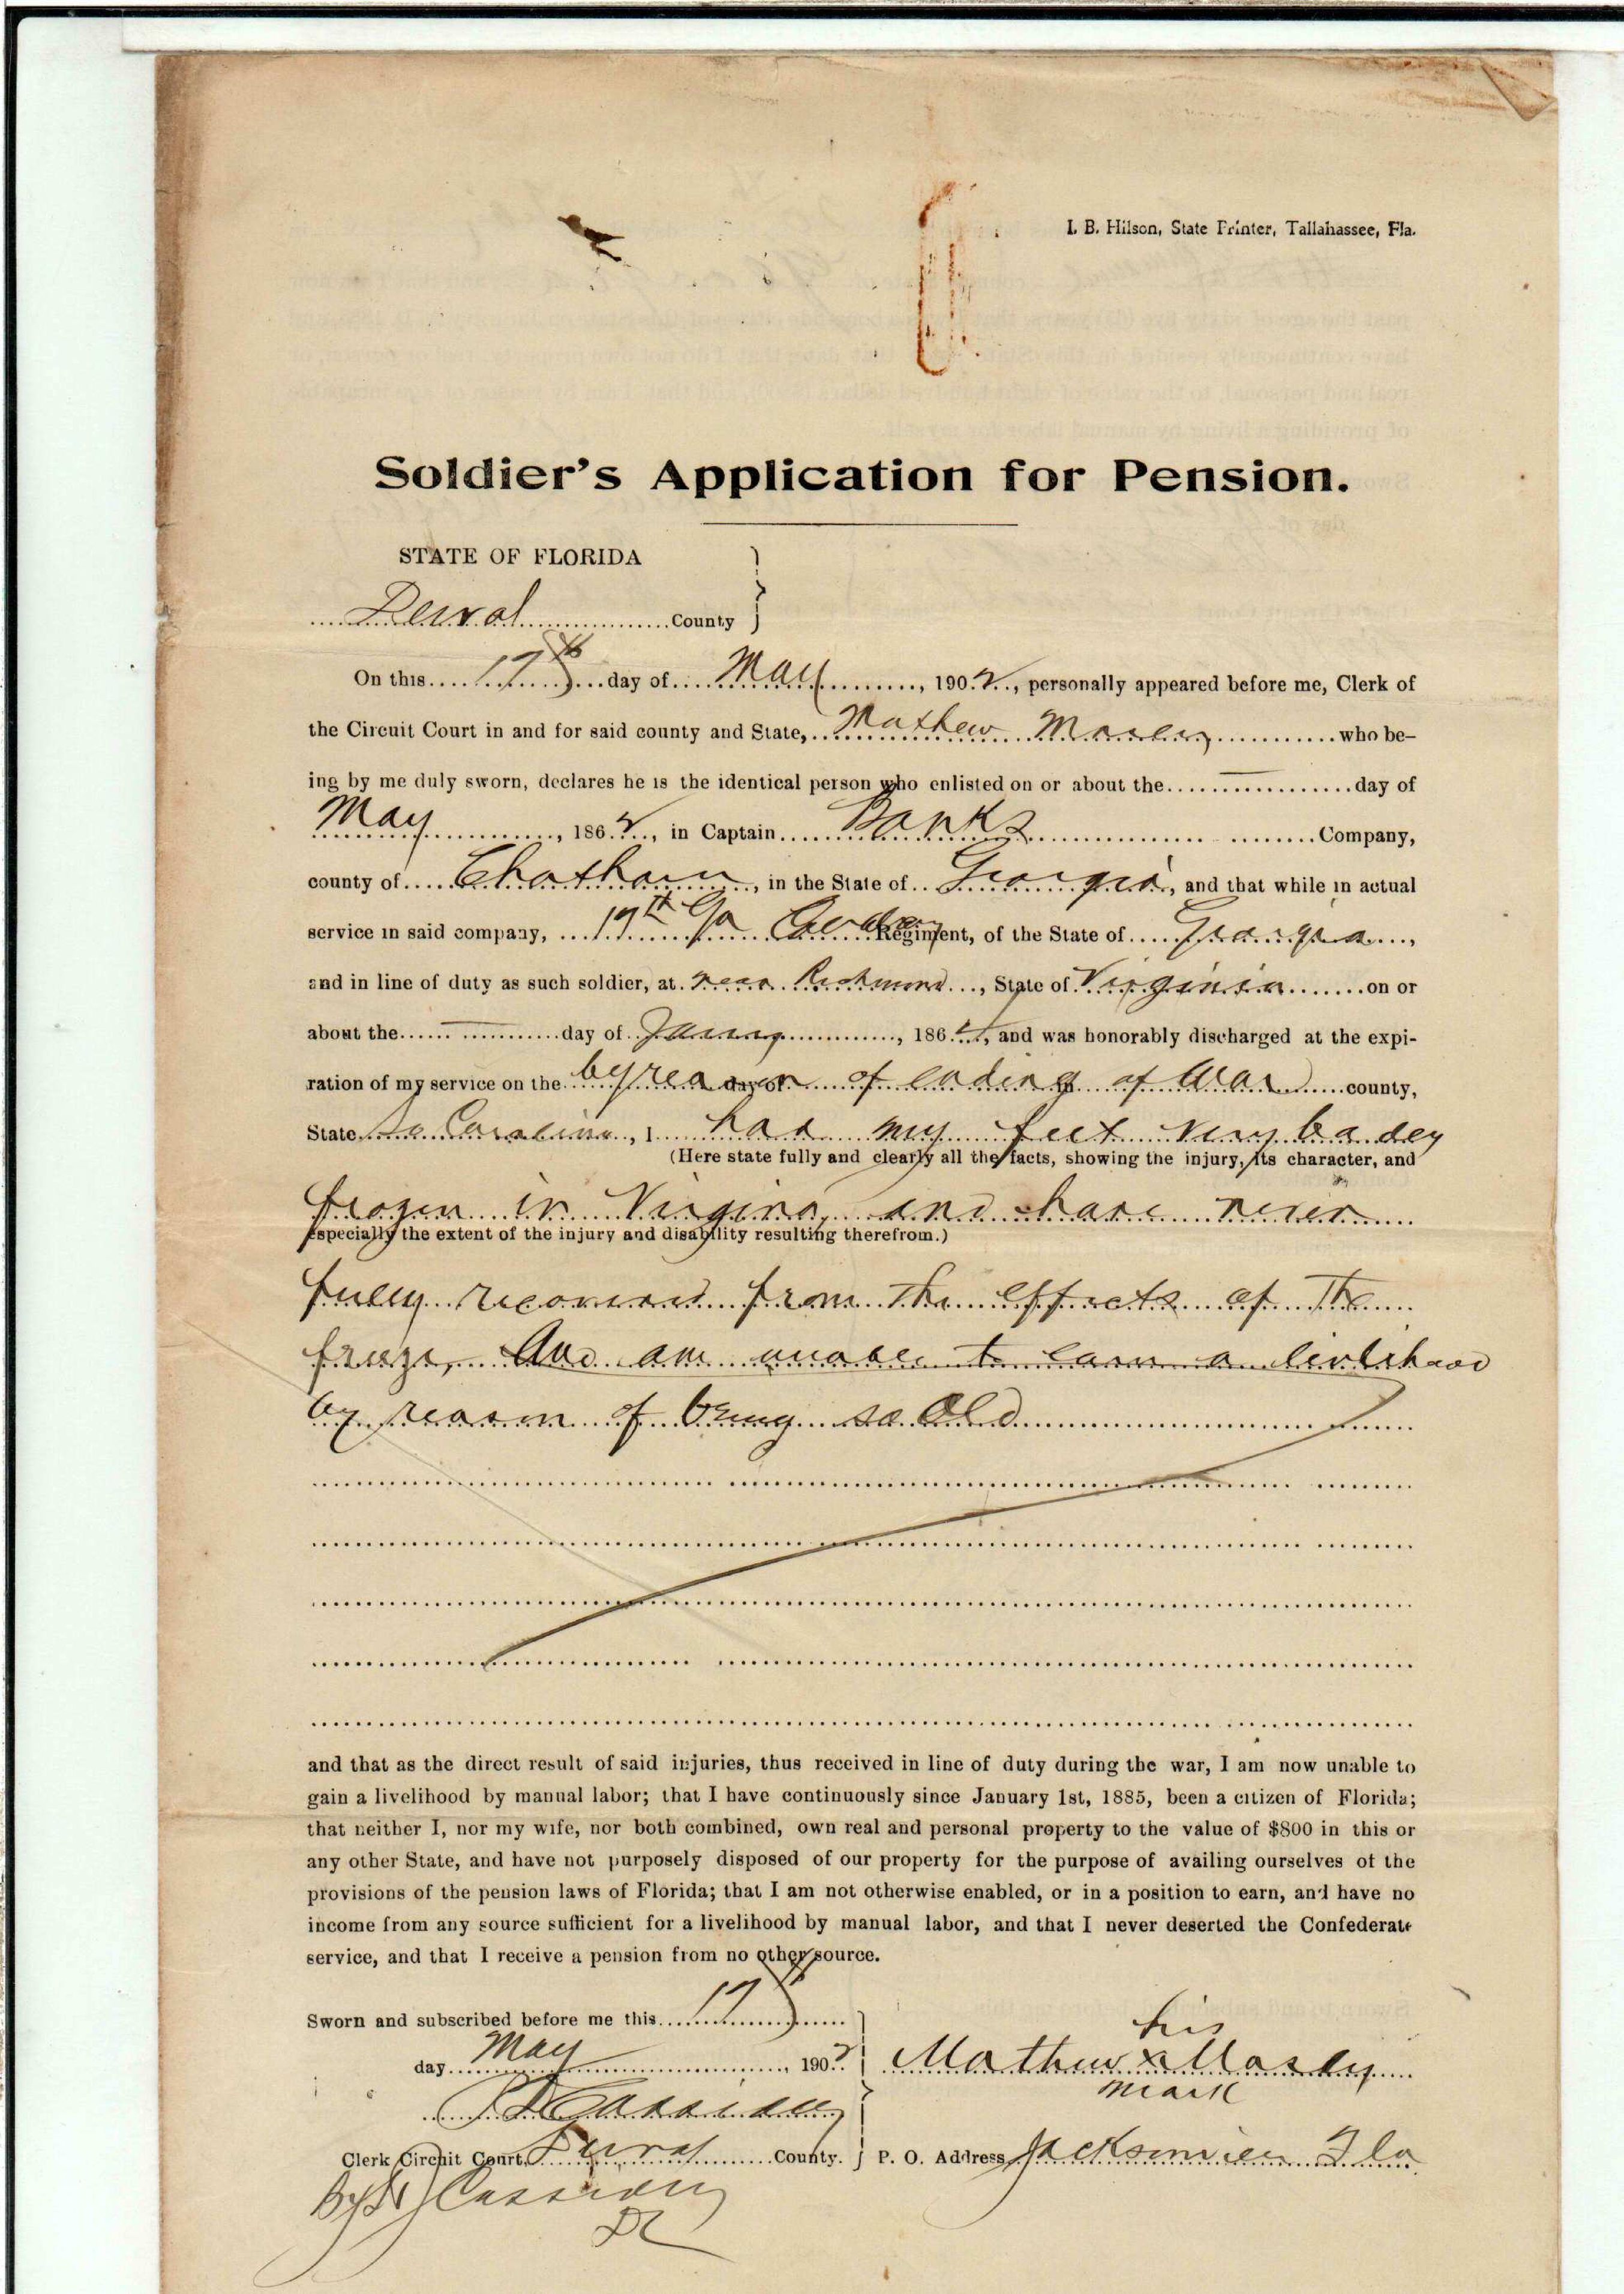 I. B. Hilson, State Printer, Tallahassee, Fla.
Soldier's Application for Pension.
STATE OF FLORIDA
Duval County
On this 17th day of May, 1902, personally appeared before me, Clerk of
the Circuit Court in and for said county and State, Mathew Mosley who be-
ing by me duly sworn, declares he is the identical person who enlisted on or about the — day of
May, 1862, in Captain Banks Company,
county of Chatham, in the State of Georgia, and that while in actual
service in said company, 17th Ga Regiment, of the State of Georgia,
and in line of duty as such soldier, at near Richmond, State of Virginia on or
about the — day of, 186 , and was honorably discharged at the expi-
ration of my service on the by reason day of of ending in of War county,
State So Carolina, I had my feet very badey
(Here state fully and clearly all the facts, showing the injury, its character, and
frozen in Virgina, and have never
especially the extent of the injury and disability resulting therefrom.)
fully recovered from the effects of The
freeze, And am unable to earn a livlihood
by reason of being so Old
and that as the direct result of said injuries, thus received in line of duty during the war, I am now unable to
gain a livelihood by manual labor; that I have continuously since January 1st, 1885, been a citizen of Florida;
that neither I, nor my wife, nor both combined, own real and personal property to the value of $800 in this or
any other State, and have not purposely disposed of our property for the purpose of availing ourselves of the
provisions of the pension laws of Florida; that I am not otherwise enabled, or in a position to earn, and have no
income from any source sufficient for a livelihood by manual labor, and that I never deserted the Confederate
service, and that I receive a pension from no other source.
Sworn and subscribed before me this 17
his
day May, 1902
Mathew x Mosley
mark
Cassidey
Clerk Circuit Court, Duval County.
P. O. Address Jacksonville Fla
By Cassidey
DC